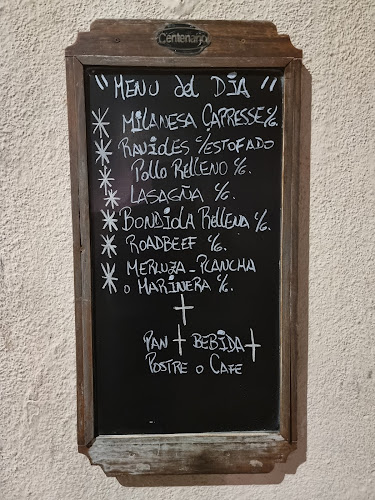 Centenario
"MENU del DIA"
* MILANESA CAPRESSE c/G.
* RAVIOLES c/ESTOFADO
* Pollo Relleno c/G.
* LASAGÑA c/G.
* BONDIOLA Rellena c/G.
* ROADBEEF c/G.
* MERLUZA - PLANCHA
* o MARINERA c/G.
+
PAN + BEBIDA +
POSTRE o CAFE